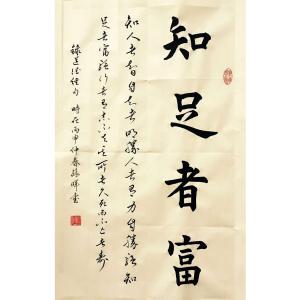 知足者富
知人者智自知者明勝人者有力自勝者強知
足者富強行者有志不失其所者久死而不亡者壽
錄道德經句 時在丙申仲春